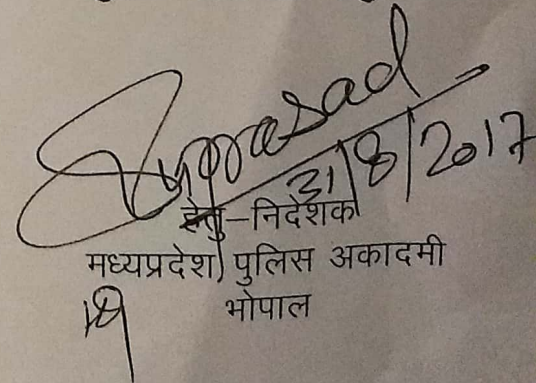 31/8/2017
हेतु-निदेशक
मध्यप्रदेश पुलिस अकादमी
भोपाल